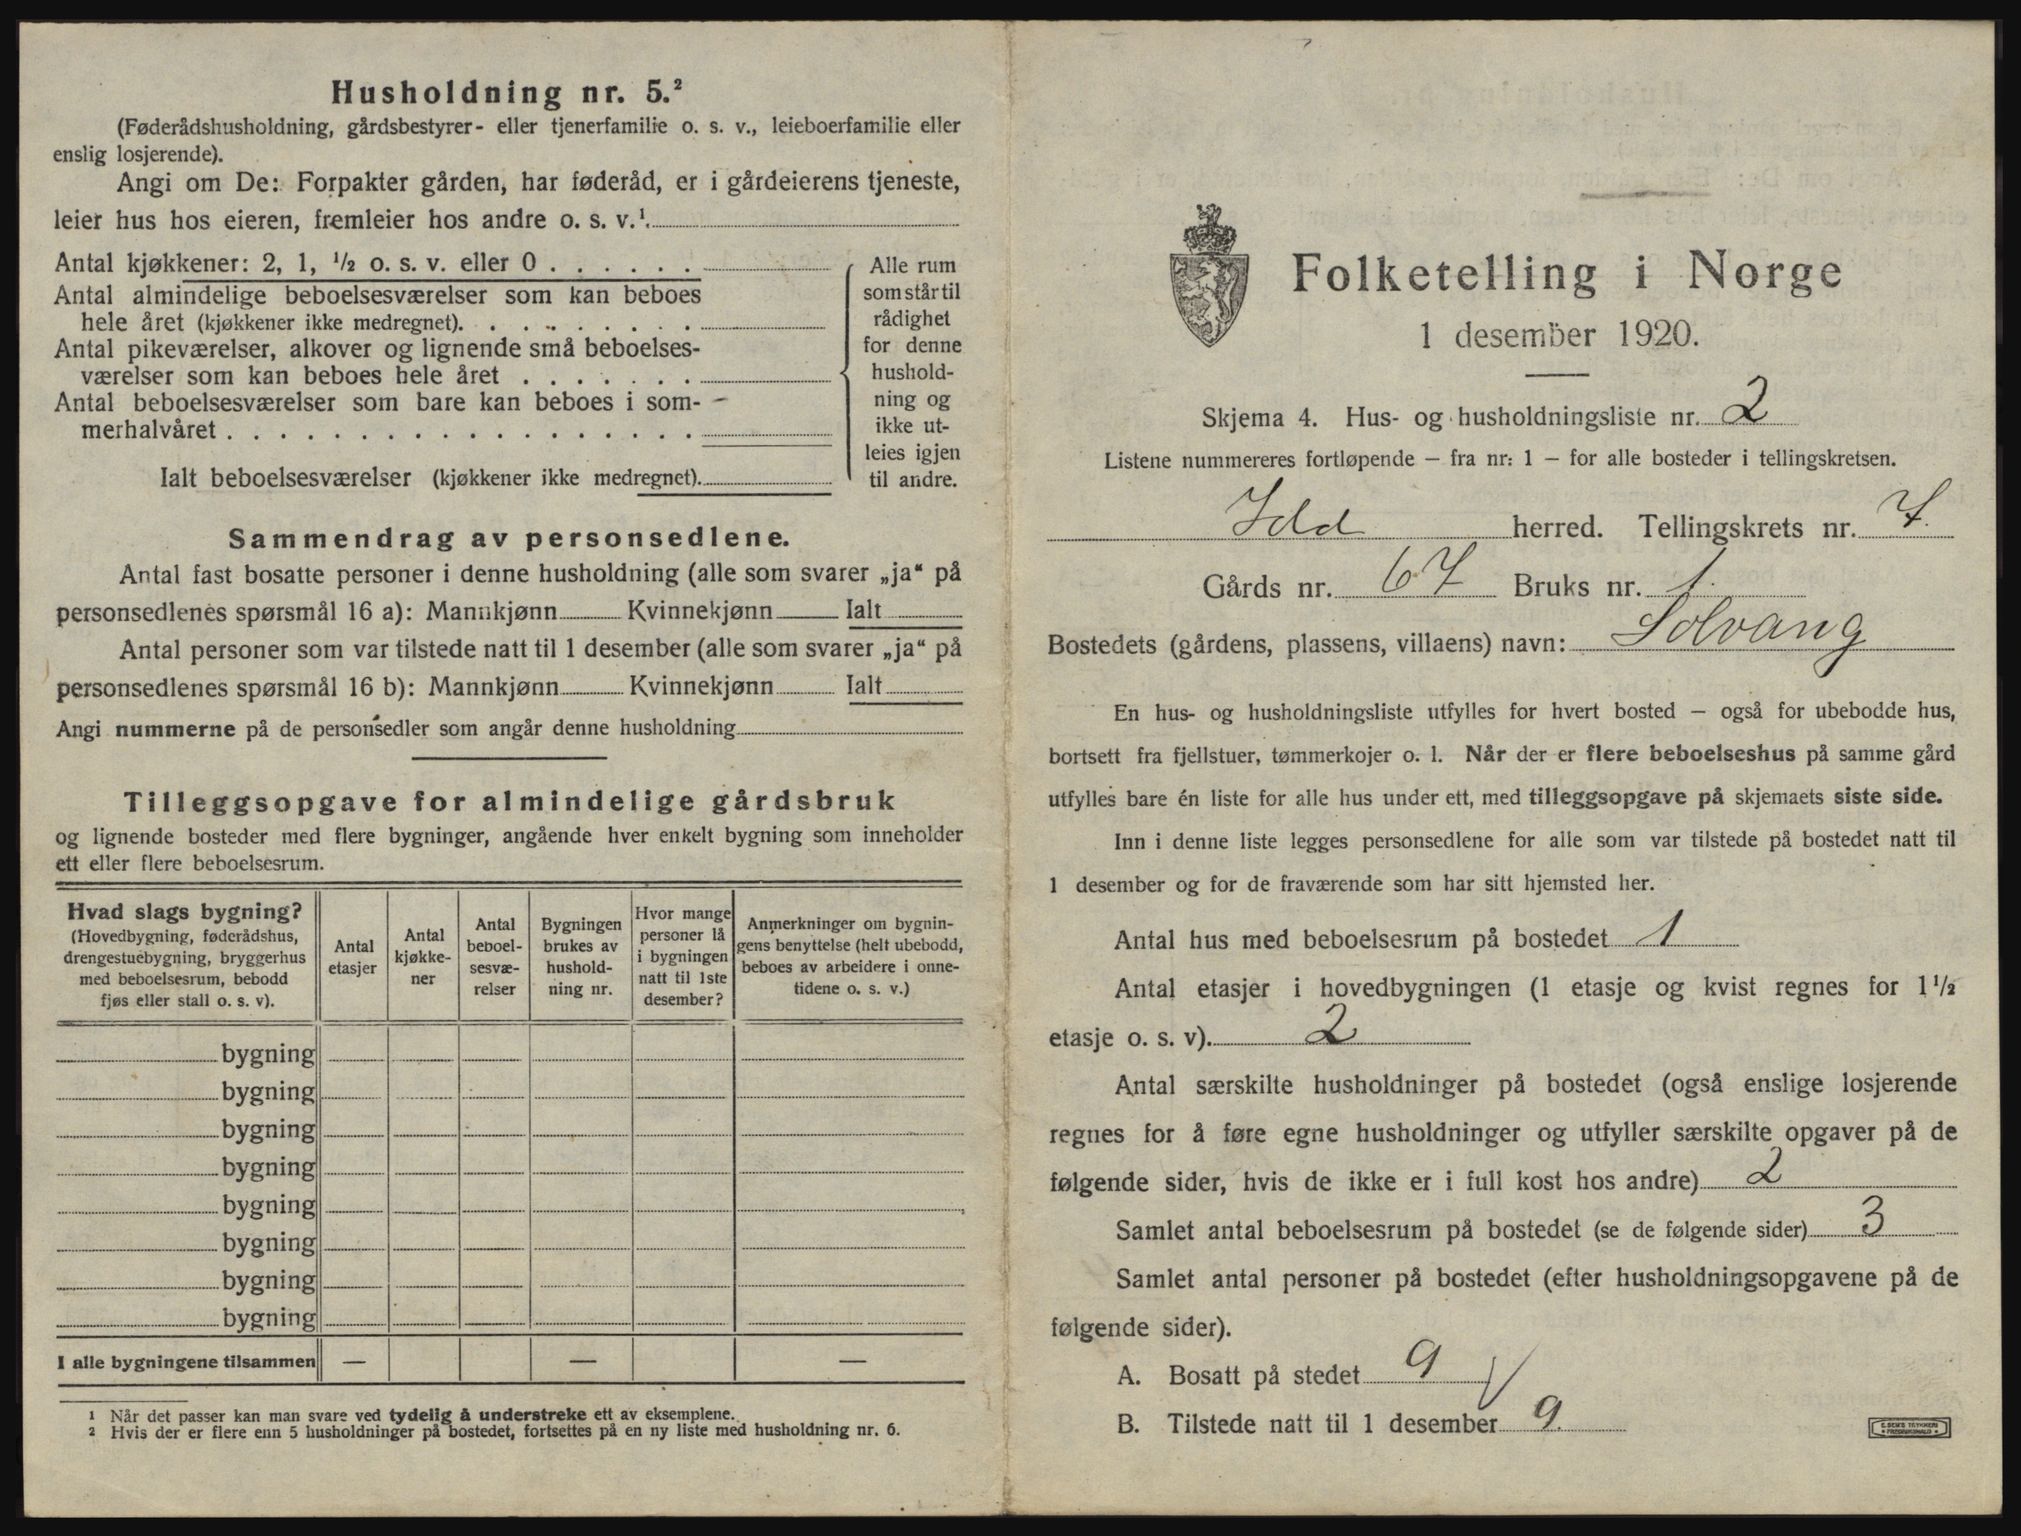 Husholdning nr. 5.²
(Føderådshusholdning, gårdsbestyrer- eller tjenerfamilie o. s. v., leieboerfamilie eller
enslig losjerende).
Angi om De: Forpakter gården, har føderåd, er i gårdeierens tjeneste,
leier hus hos eieren, fremleier hos andre o. s. v.¹.
Antal kjøkkener: 2, 1, ½ o. s. v. eller 0 . . . . . .
Antal almindelige beboelsesværelser som kan beboes
hele året (kjøkkener ikke medregnet). . . . . . . . .
Antal pikeværelser, alkover og lignende små beboelses-
værelser som kan beboes hele året . . . . . . .
Antal beboelsesværelser som bare kan beboes i som- –
merhalvåret . . . . . . . . . . . . . . . . . .
Ialt beboelsesværelser (kjøkkener ikke medregnet).
Alle rum
som står til
rådighet
for denne
hushold-
ning og
ikke ut-
leies igjen
til andre.
Sammendrag av personsedlene.
Antal fast bosatte personer i denne husholdning (alle som svarer „ja“ på
personsedlenes spørsmål 16 a): Mannkjønn Kvinnekjønn Ialt
Antal personer som var tilstede natt til 1 desember (alle som svarer „ja“ på
personsedlenes spørsmål 16 b): Mannkjønn Kvinnekjønn Ialt
Angi nummerne på de personsedler som angår denne husholdning
Tilleggsopgave for almindelige gårdsbruk
og lignende bosteder med flere bygninger, angående hver enkelt bygning som inneholder
ett eller flere beboelsesrum.
Hvad slags bygning?
(Hovedbygning, føderådshus,
drengestuebygning, bryggerhus
med beboelsesrum, bebodd
fjøs eller stall o. s. v).
Antal
etasjer
Antal
kjøkke-
ner
Antal
beboel-
sesvæ-
relser
Bygningen
brukes av
hushold-
ning nr.
Hvor mange
personer lå
i bygningen
natt til 1ste
desember?
Anmerkninger om bygnin-
gens benyttelse (helt ubebodd,
beboes av arbeidere i onne-
tidene o. s. v.)
bygning
bygning
bygning
bygning
bygning
bygning
bygning
bygning
I alle bygningene tilsammen — — —
¹ Når det passer kan man svare ved tydelig å understreke ett av eksemplene.
² Hvis der er flere enn 5 husholdninger på bostedet, fortsettes på en ny liste med husholdning nr. 6.
Folketelling i Norge
1 desember 1920.
Skjema 4. Hus- og husholdningsliste nr. 2
Listene nummereres fortløpende – fra nr: 1 – for alle bosteder i tellingskretsen.
Idd herred. Tellingskrets nr. 7.
Gårds nr. 67 Bruks nr. 1.
Bostedets (gårdens, plassens, villaens) navn: Solvang
En hus- og husholdningsliste utfylles for hvert bosted – også for ubebodde hus,
bortsett fra fjellstuer, tømmerkojer o. l. Når der er flere beboelseshus på samme gård
utfylles bare én liste for alle hus under ett, med tilleggsopgave på skjemaets siste side.
Inn i denne liste legges personsedlene for alle som var tilstede på bostedet natt til
1 desember og for de fraværende som har sitt hjemsted her.
Antal hus med beboelsesrum på bostedet 1
Antal etasjer i hovedbygningen (1 etasje og kvist regnes for 1½
etasje o. s. v). 2
Antal særskilte husholdninger på bostedet (også enslige losjerende
regnes for å føre egne husholdninger og utfyller særskilte opgaver på de
følgende sider, hvis de ikke er i full kost hos andre) 2
Samlet antal beboelsesrum på bostedet (se de følgende sider) 3
Samlet antal personer på bostedet (efter husholdningsopgavene på de
følgende sider).
A. Bosatt på stedet 9
B. Tilstede natt til 1 desember 9.
E. SEMS TRYKKERI
FREDRIKSHALD